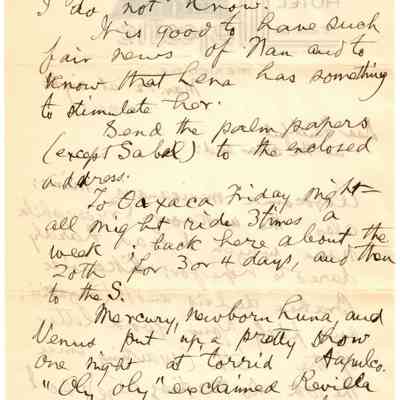 I do not know.
It is good to have such
fair news of Nan and to
know that Lena has something
to stimulate her.
Send the palm papers
(except Sabal) to the enclosed
address.
To Oaxaca Friday night –
all night ride 3 times a
week ; back here about the
20th for 3 or 4 days, and then
to the S.
Mercury, newborn Luna, and
Venus put up a pretty show
one night at torrid Acapulco.
"Oly oly" exclaimed Revilla